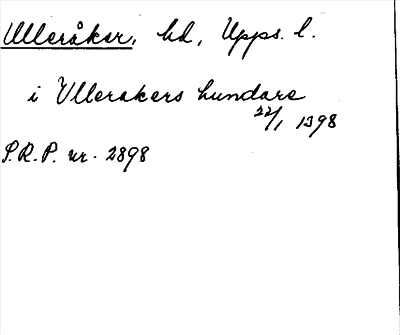 Ulleråker, hd, Upps. l.
i Vllerakers hundare
22/1 1398
S.R.P. nr. 2898